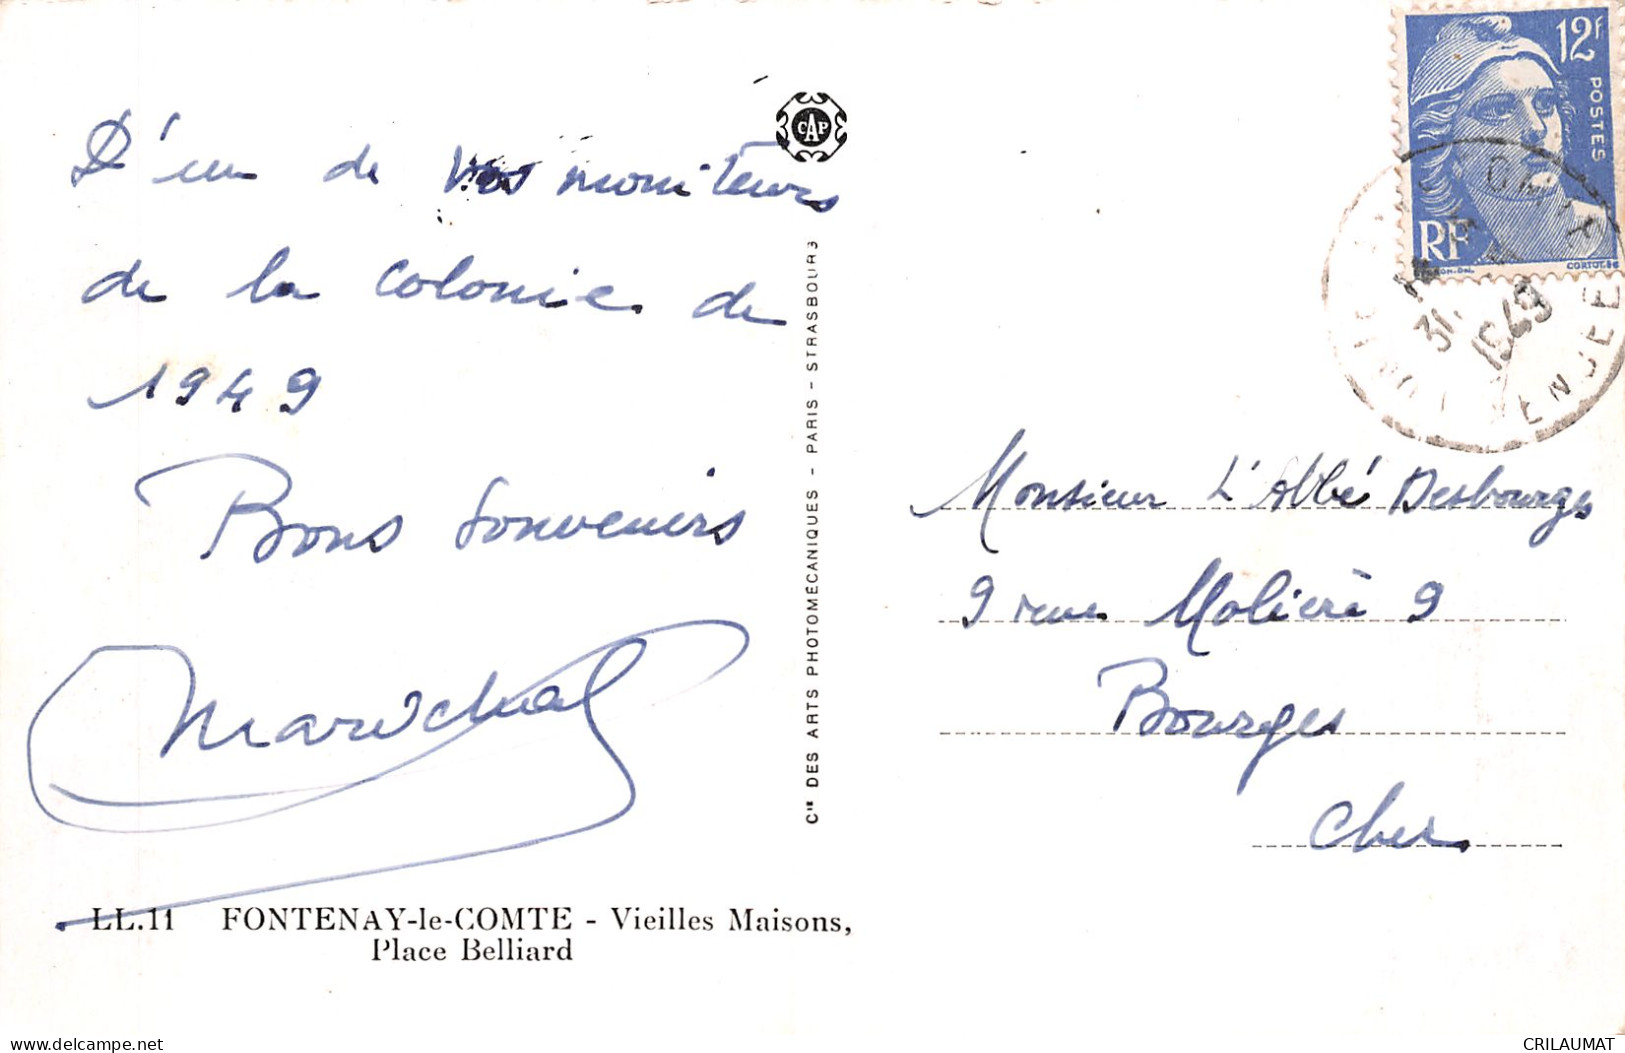 D'un de vos moniteurs
de la colonie de
1949
Bons Souvenirs
Marechal
LL.11 FONTENAY-le-COMTE - Vieilles Maisons,
Place Belliard
CAP
Cie DES ARTS PHOTOMECANIQUES - PARIS - STRASBOURG
12F
POSTES
RF
CORTOT.SC
31
1949
VENDEE
Monsieur L'Abbé Desbourges
9 rue Molière 9
Bourges
Cher
CRILAUMAT